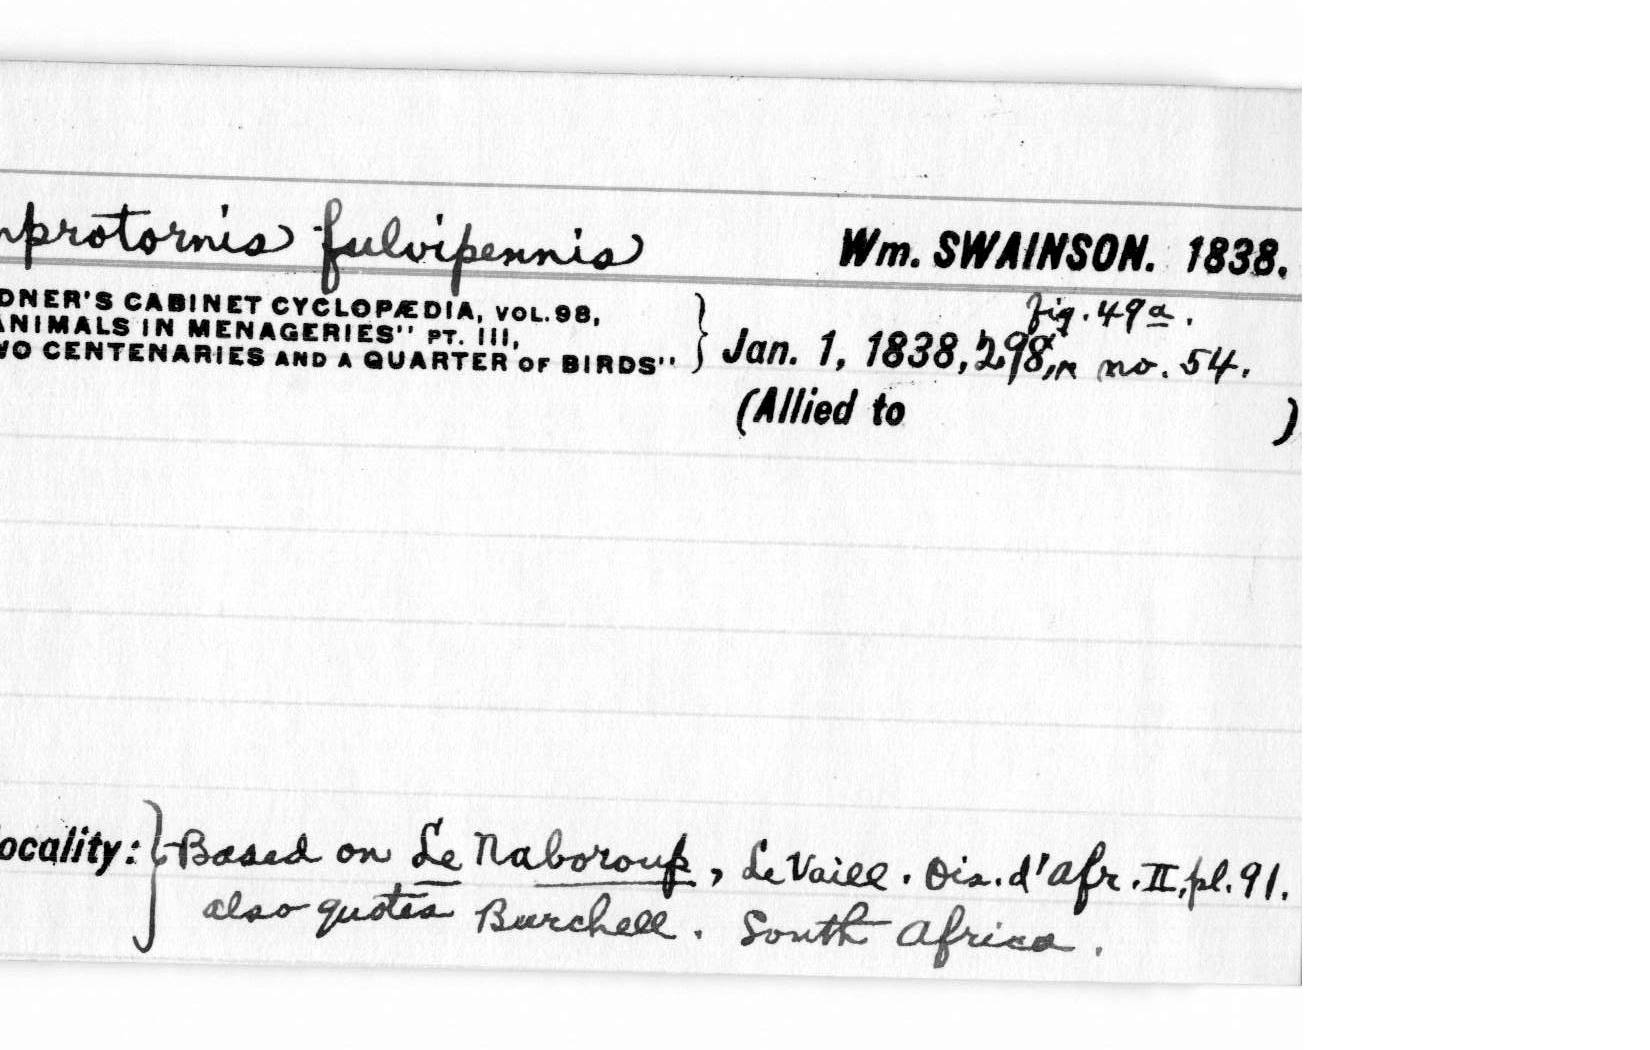 mprotornis fulvipennis Wm. SWAINSON. 1838.
DNER'S CABINET CYCLOPÆDIA, VOL. 98,
ANIMALS IN MENAGERIES" PT. III,
WO CENTENARIES AND A QUARTER OF BIRDS"
fig. 49a.
Jan. 1, 1838, 298, no. 54.
(Allied to )
ocality: Based on Le Naboroup, Le Vaill. Ois. d'Afr. II, pl. 91.
also quotes Burchell. South Africa.